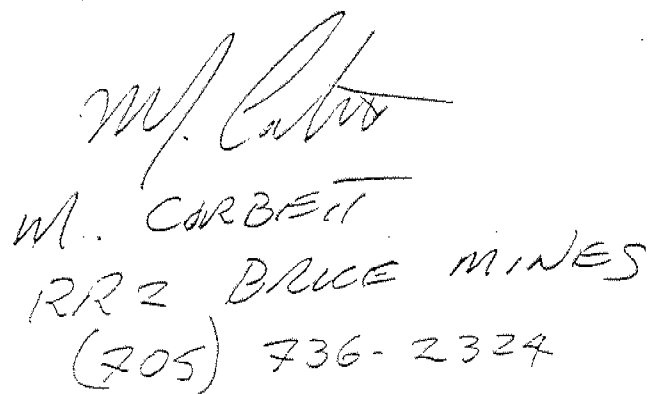 M. Corbett
M. CORBETT
RR2 BRUCE MINES
(705) 736-2324